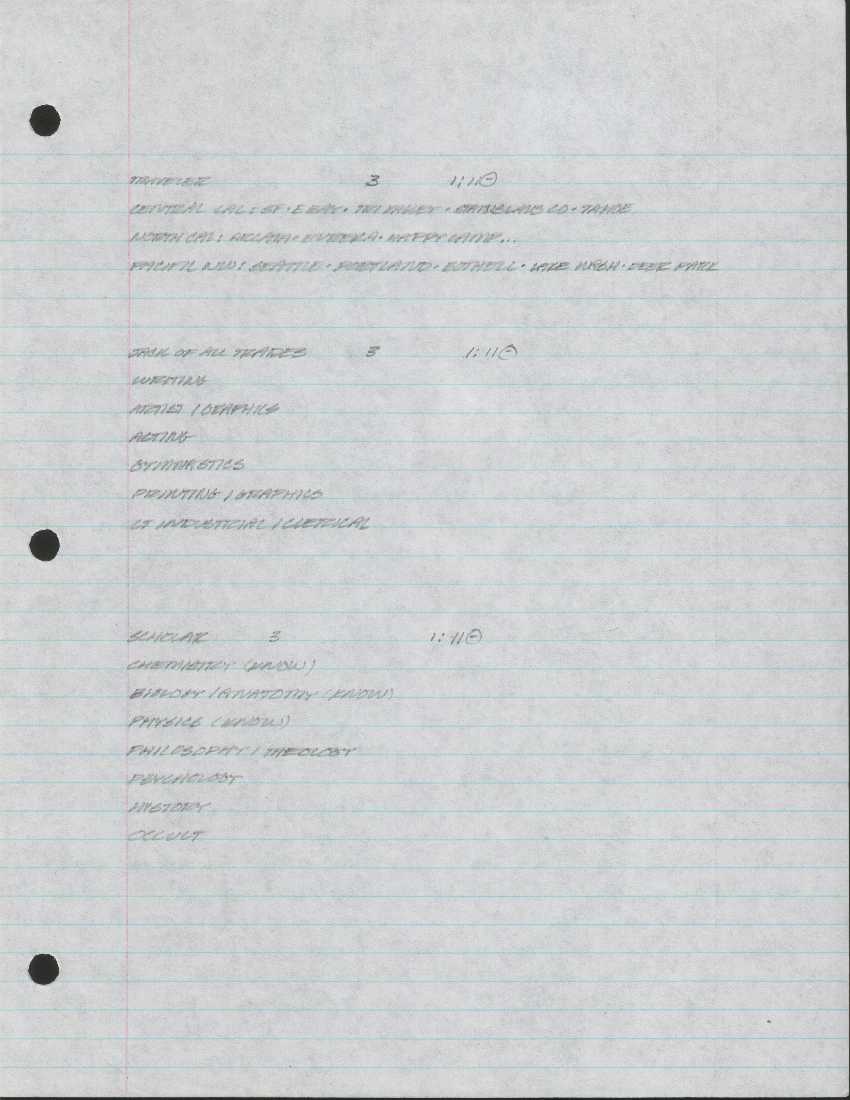 TRAVELER 3 1:11
CENTRAL CAL: SF · E BAY · TRI VALLEY · STANISLAUS CO · TAHOE
NORTH CAL: ARCATA · EUREKA · HAPPY CAMP...
PACIFIC NW: SEATTLE · PORTLAND · BOTHELL · LAKE WASH · DEER PARK
JACK OF ALL TRADES 3 1:11
WRITING
ARTIST / GRAPHICS
ACTING
GYMNASTICS
PRINTING / GRAPHICS
LT INDUSTRIAL / CLERICAL
SCHOLAR 3 1:11
CHEMISTRY (KNOW)
BIOLOGY / ANATOMY (KNOW)
PHYSICS (KNOW)
PHILOSOPHY / THEOLOGY
PSYCHOLOGY
HISTORY
OCCULT